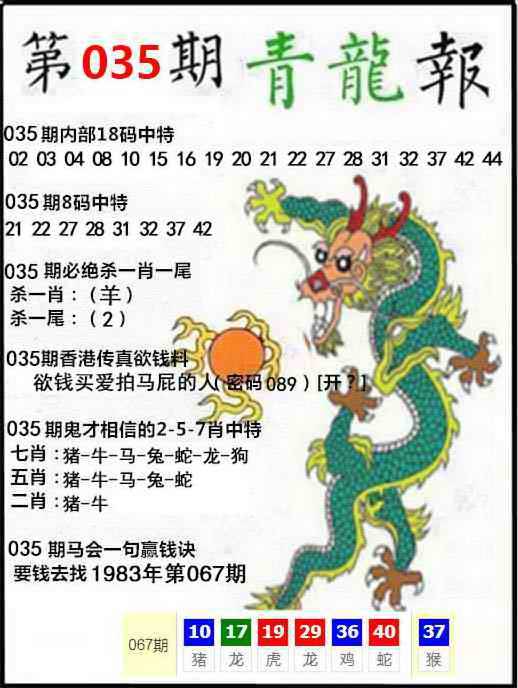 第035期 青龍報
035期内部18码中特
02 03 04 08 10 15 16 19 20 21 22 27 28 31 32 37 42 44
035期8码中特
21 22 27 28 31 32 37 42
035 期必绝杀一肖一尾
杀一肖：（羊）
杀一尾：（2）
035期香港传真欲钱料
欲钱买爱拍马屁的人(密码089) [开？]
035期鬼才相信的2-5-7肖中特
七肖：猪-牛-马-兔-蛇-龙-狗
五肖：猪-牛-马-兔-蛇
二肖：猪-牛
035 期马会一句赢钱诀
要钱去找1983年第067期
067期 10 17 19 29 36 40 37
猪 龙 虎 龙 鸡 蛇 猴